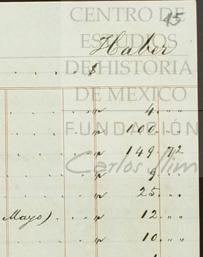 CENTRO DE 95
ESTUDIOS
Haber
DE HISTORIA
$
DE MEXICO
" 4 " "
FUNDACIÓN
" 100 " "
" 149 72
Carlos Slim
" 9 " "
" 25 " "
Mayo) " 12 " "
" 10 " "